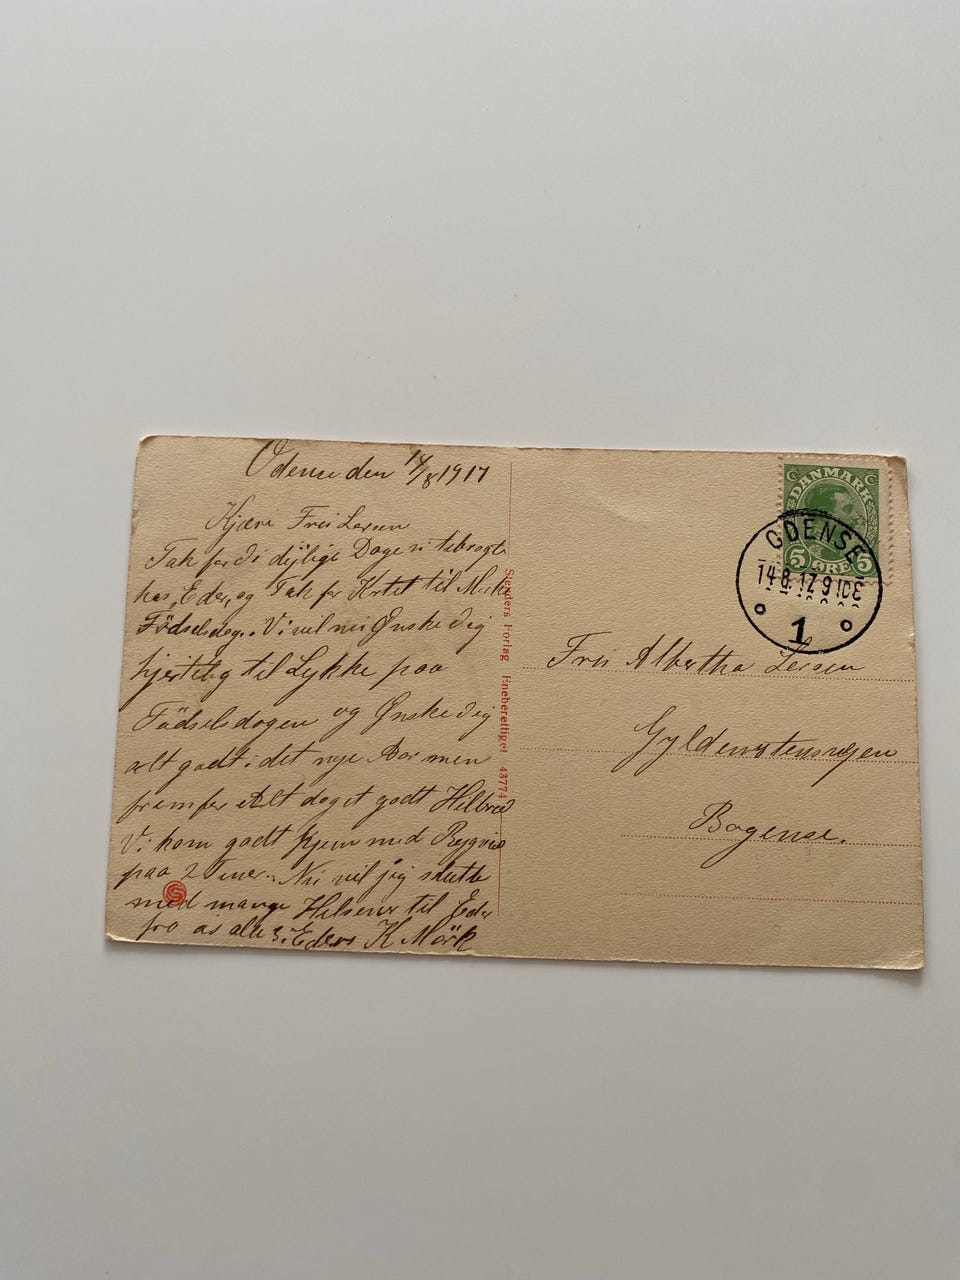 Odense den 14/8 1917
Kjære Frü Larsen
Tak for de dejlige Dage vi tebragte
hos Eder, og Tak for Kortet til
Födselsdag. Vi vil nu Ønske dig
hjertelig til Lykke paa
Födselsdagen og Ønske dig
alt godt i det nye Aar men
fremfor Alt dog et godt Helbred
Vi kom godt hjem med Regnvid
paa 2 Timer. Nu vil jeg slutte
med mange Hilsener til Eder
fra os alle 3. Eders K Mörk
Stenders Forlag Eneberettiget 43774
DANMARK
5 ØRE 5
ODENSE
14.8.17. 9
1
Frü Albertha Larsen
Gyldenstensvejen
Bogense.